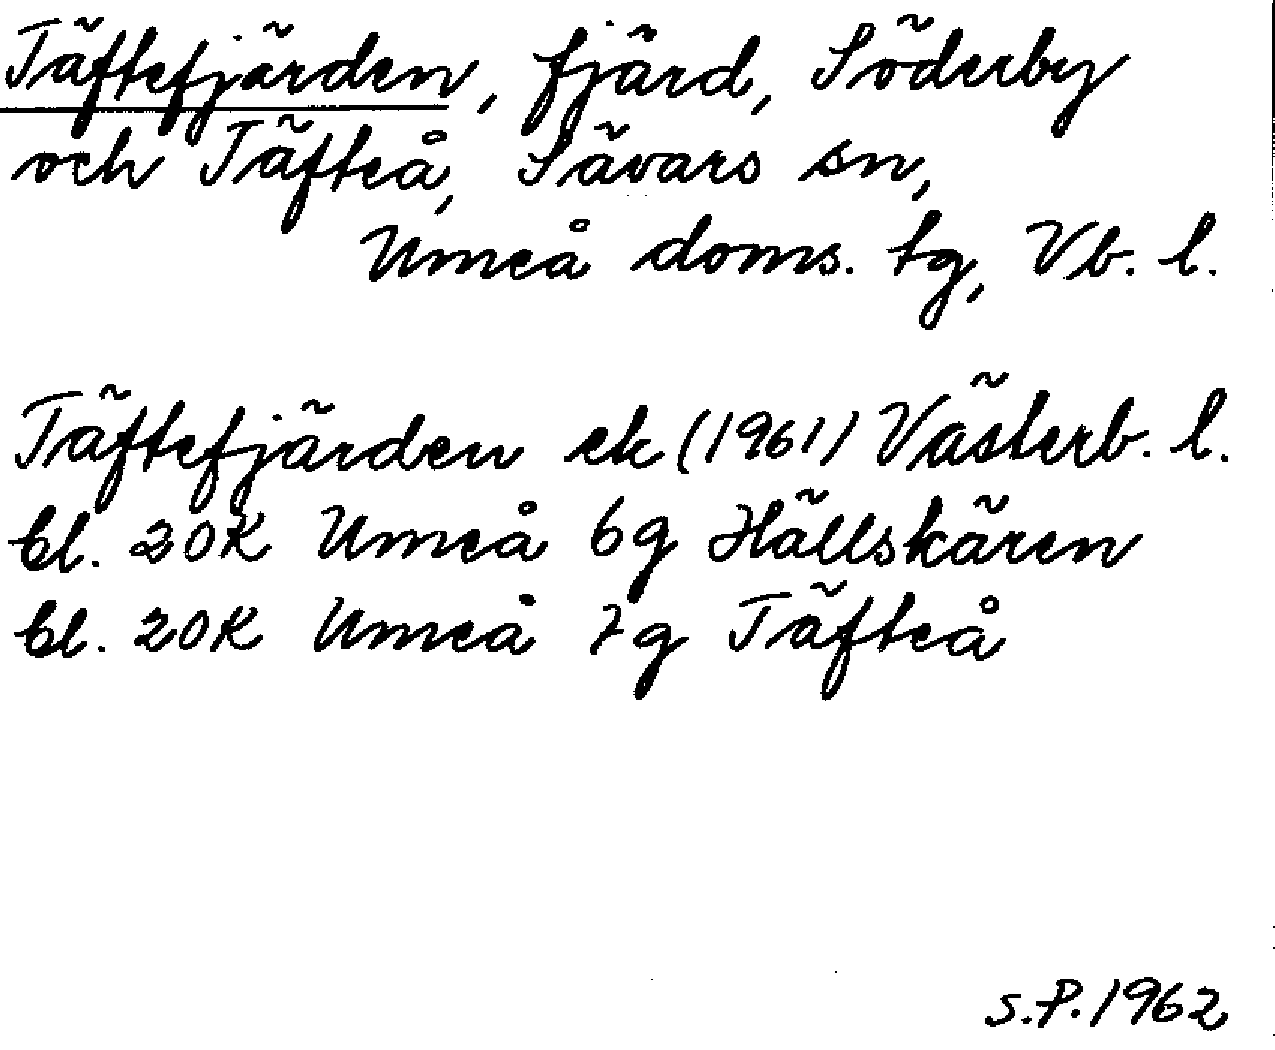 Täftefjärden, fjärd, Söderby
och Täfteå, Sävars sn,
Umeå doms. tg, Vb. l.
Täftefjärden ek (1961) Västerb. l.
bl. 20K Umeå 6g Hällskären
bl. 20K Umeå 7g Täfteå
S.P. 1962